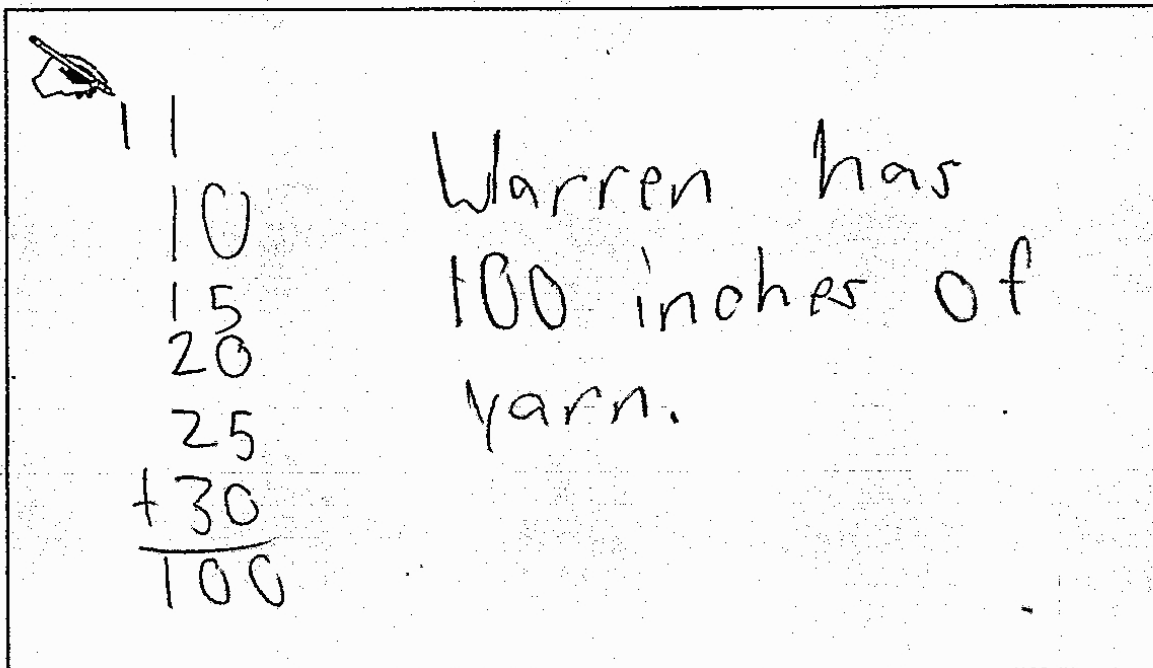 1 1
10
15
20
25
+ 30
100
Warren has
100 inches of
yarn.